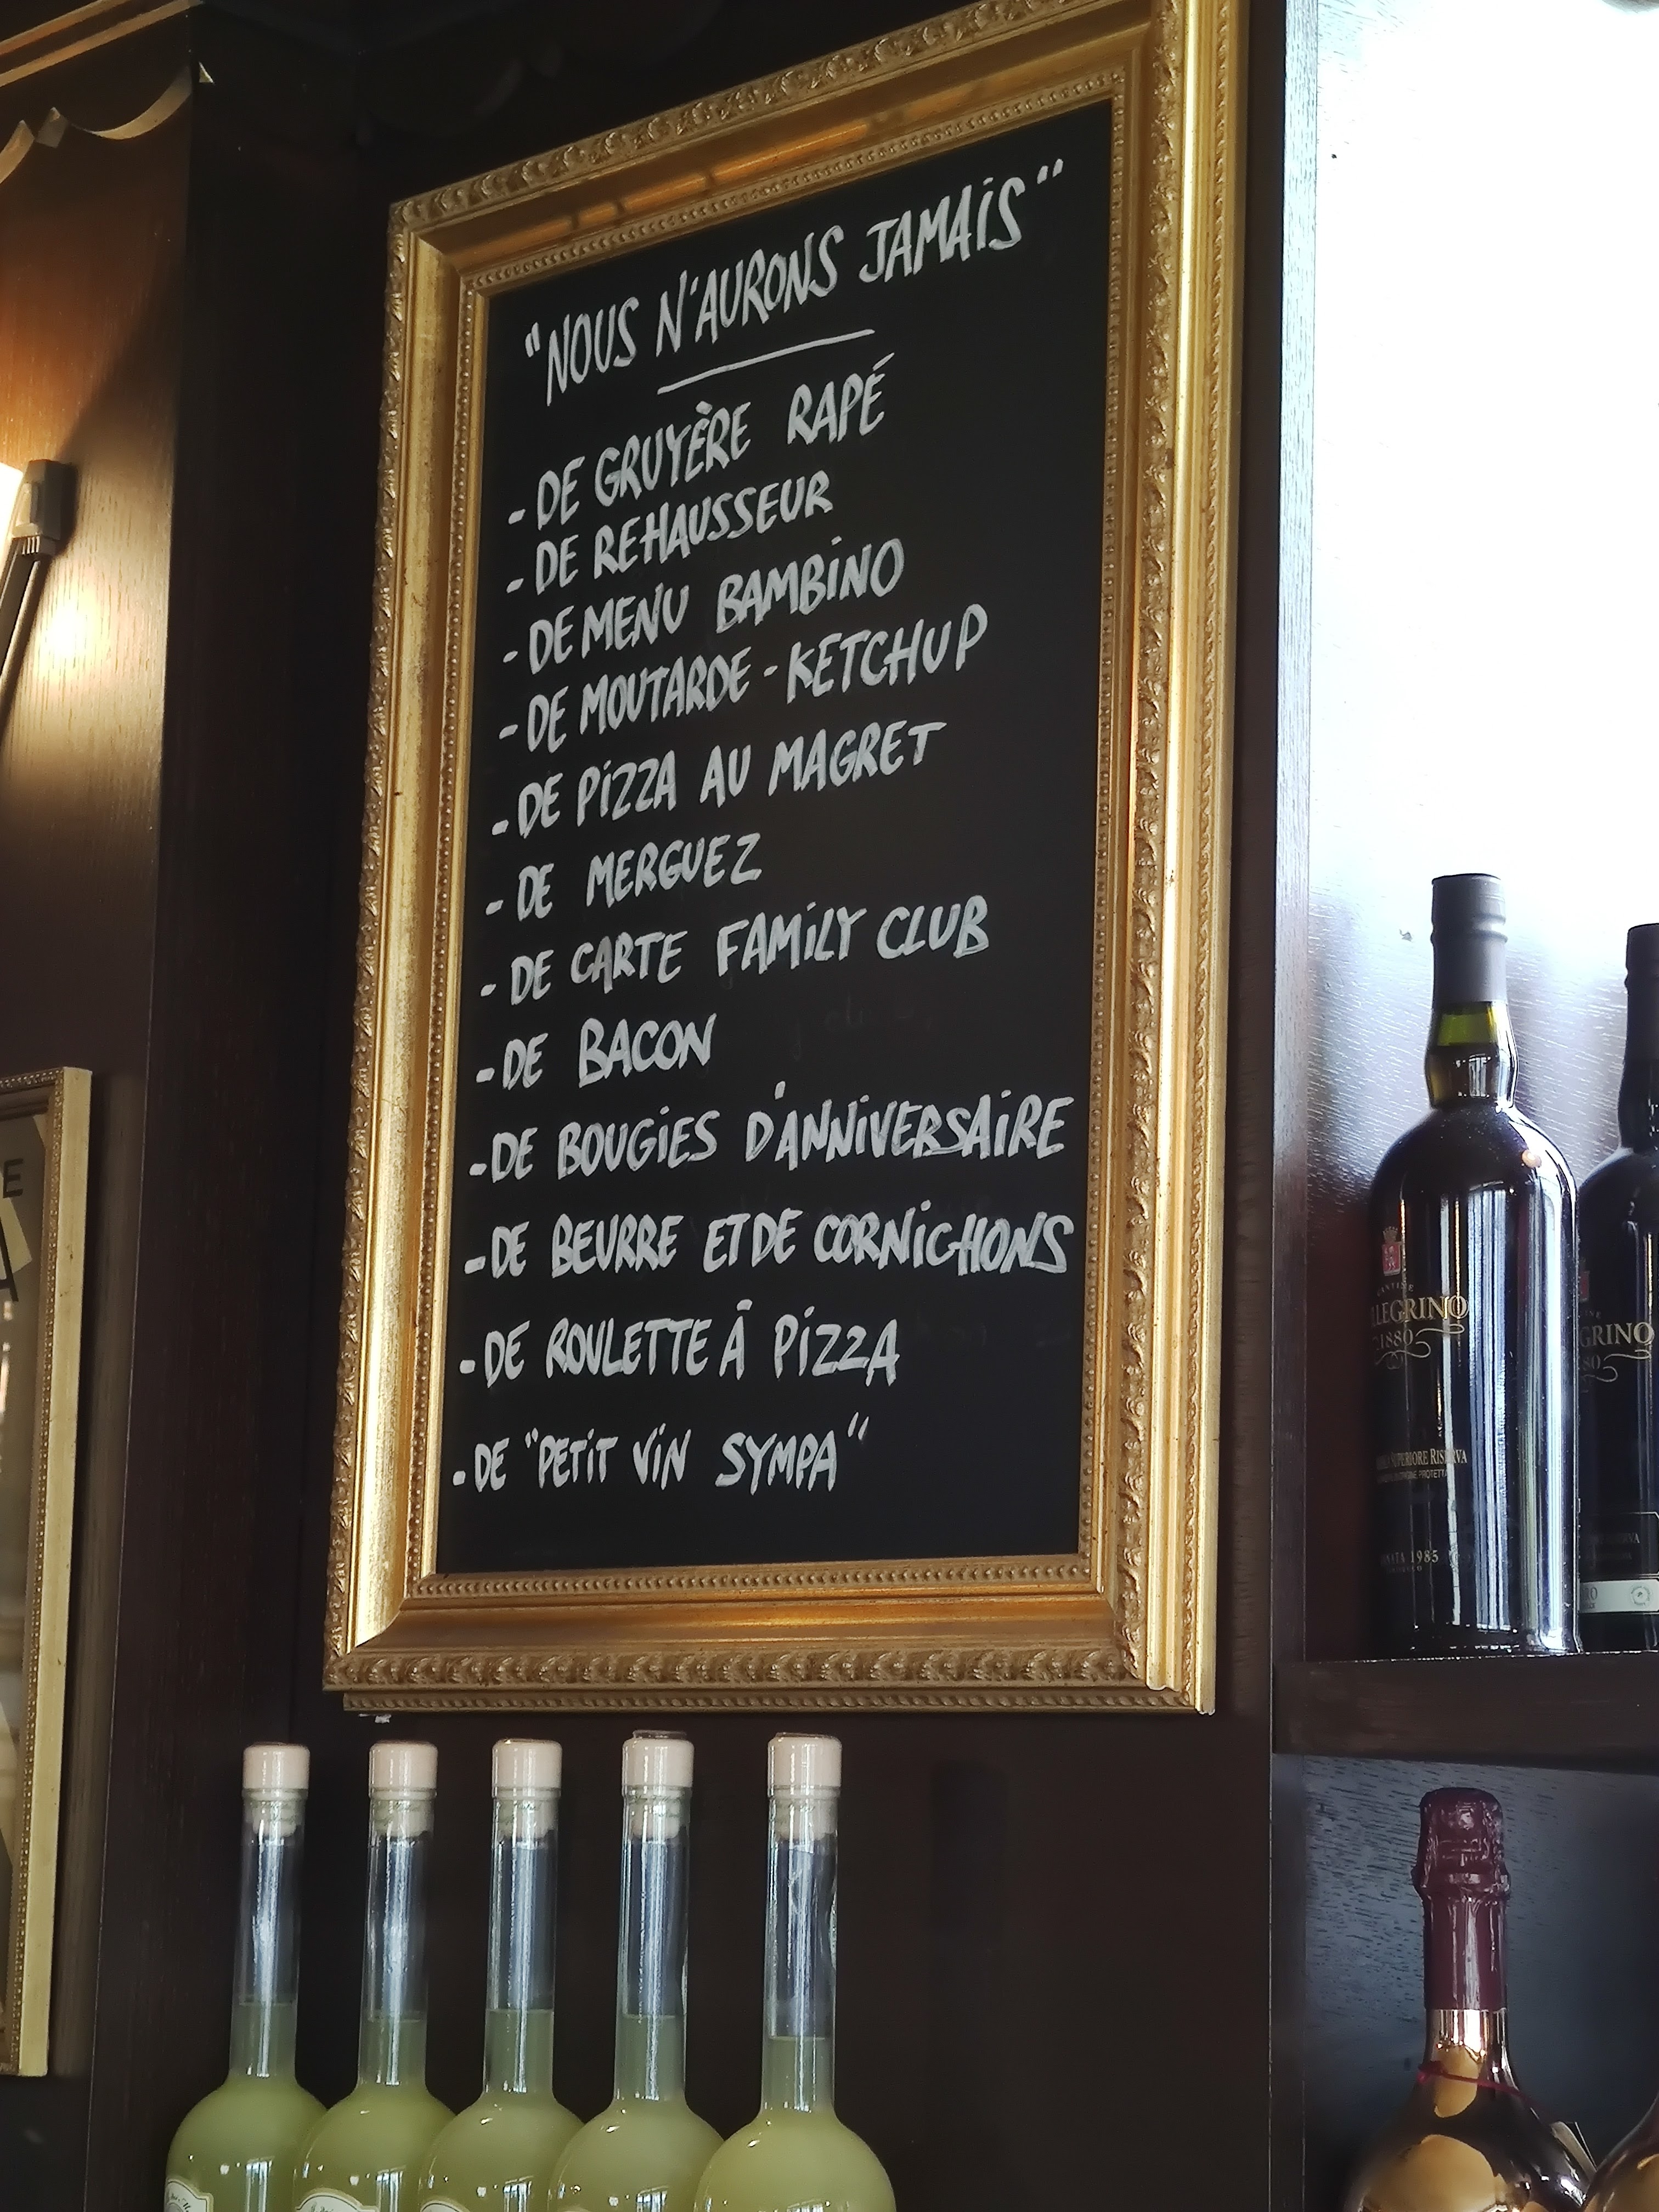 "NOUS N'AURONS JAMAIS"
- DE GRUYÈRE RAPÉ
- DE REHAUSSEUR
- DE MENU BAMBINO
- DE MOUTARDE - KETCHUP
- DE PIZZA AU MAGRET
- DE MERGUEZ
- DE CARTE FAMILY CLUB
- DE BACON
- DE BOUGIES D'ANNIVERSAIRE
- DE BEURRE ET DE CORNICHONS
- DE ROULETTE À PIZZA
- DE "PETIT VIN SYMPA"
LEGRINO
1880
SUPERIORE RISERVA
1985
GRINO
80